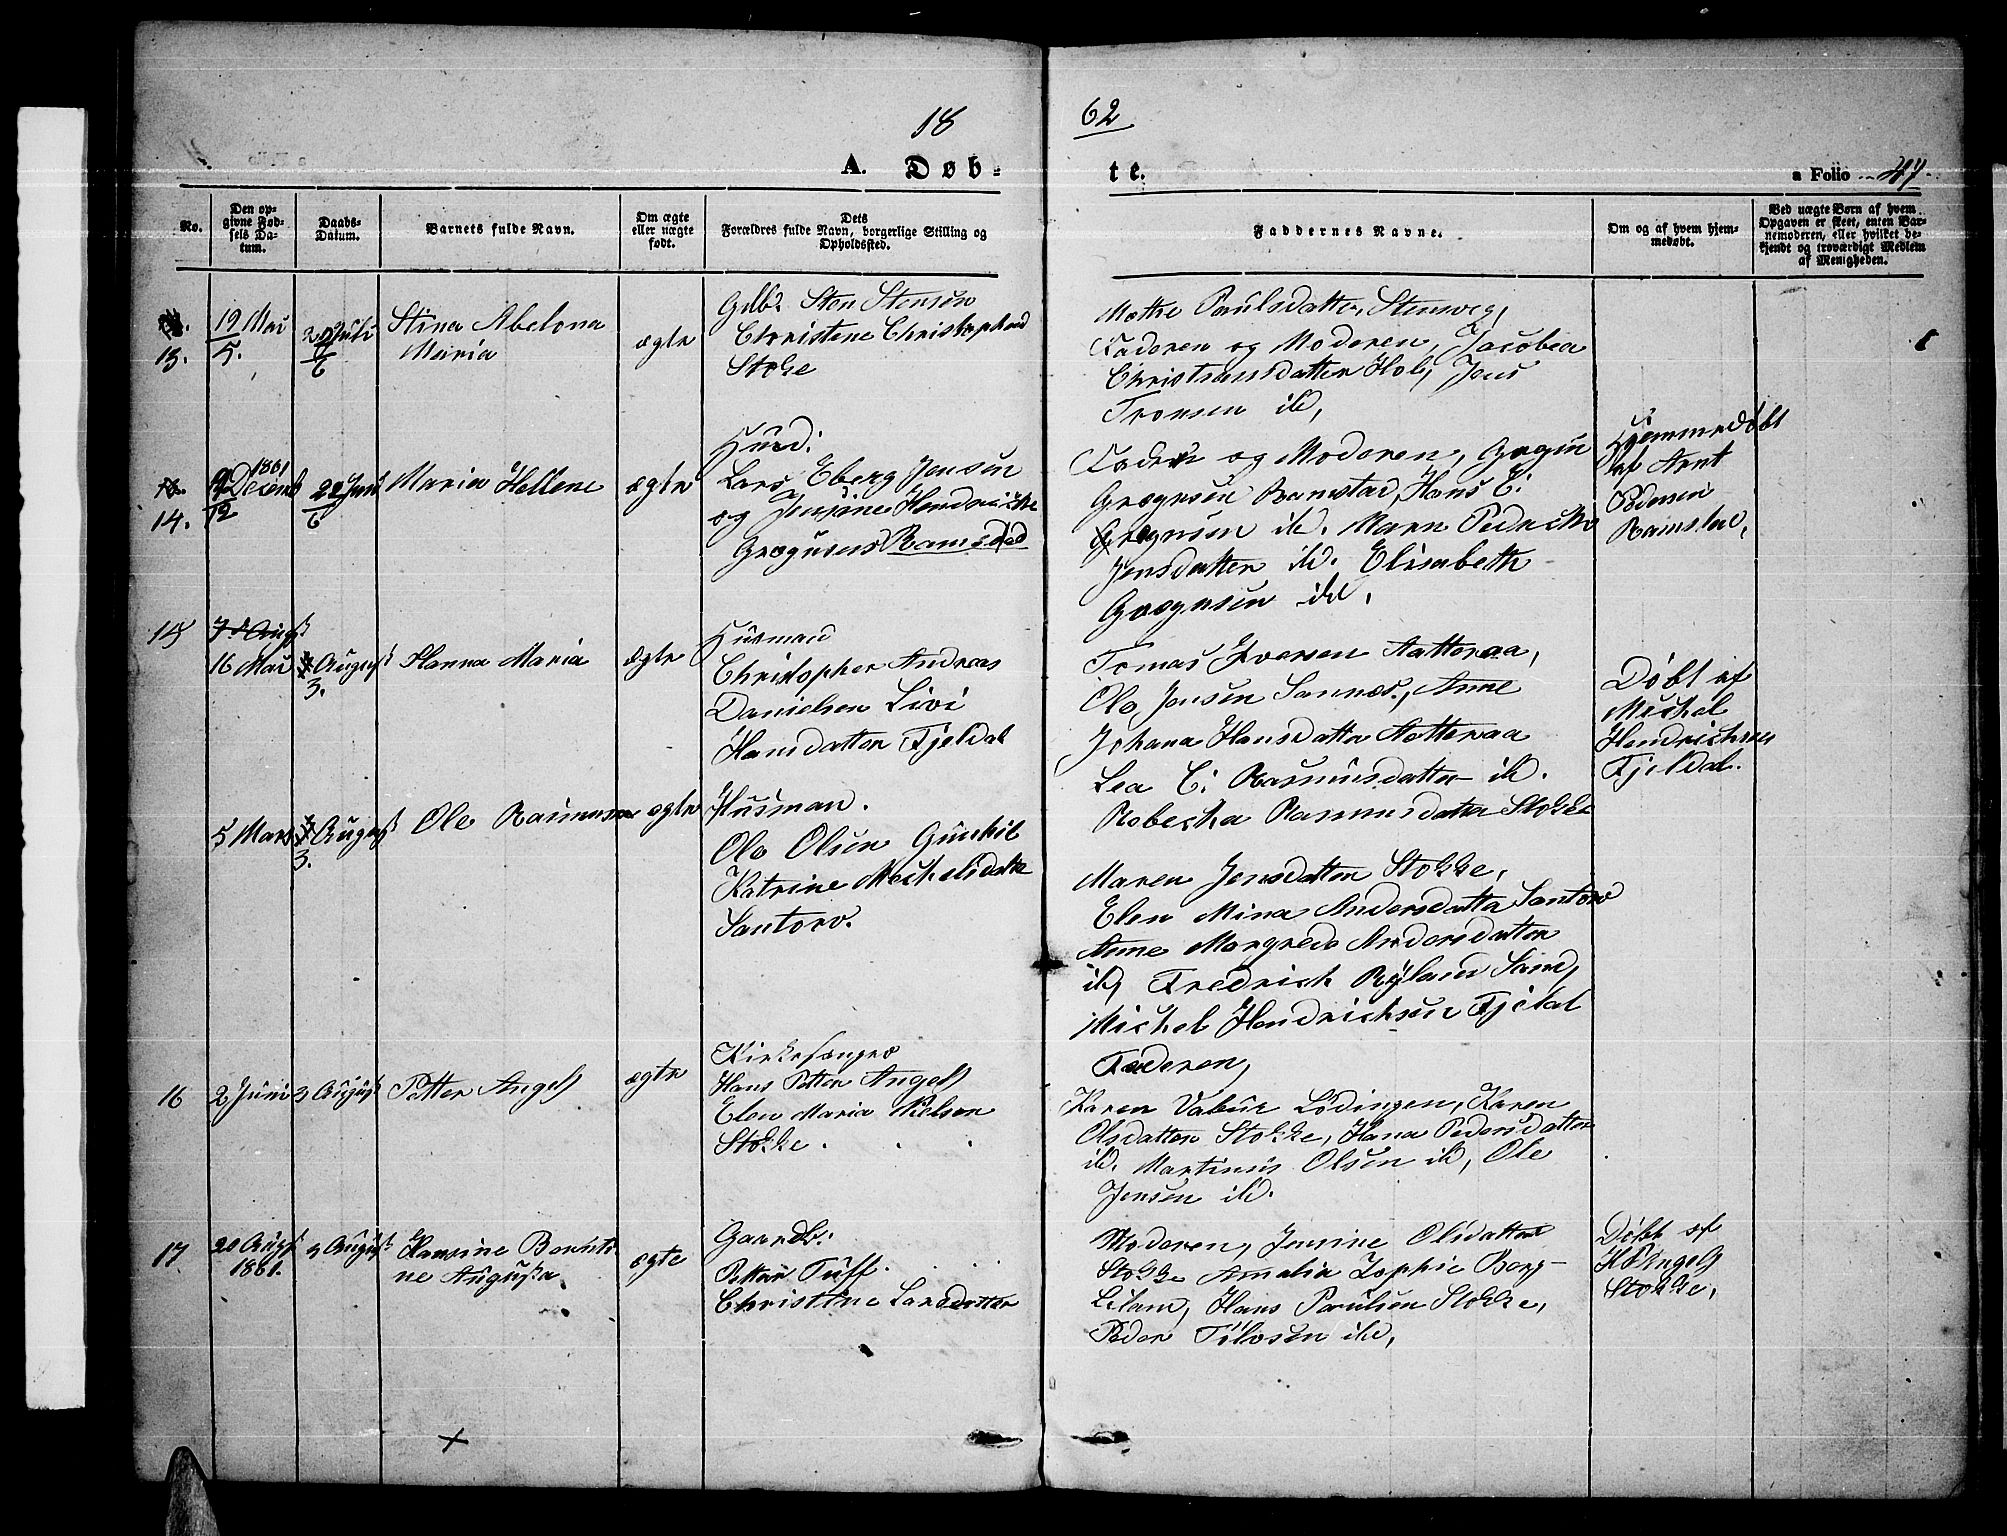 18
62
A. Døb-
te.
a Folio 47
No.
Den op-
givne Fød-
sels Da-
tum.
Daabs-
Datum.
Barnets fulde Navn.
Om ægte
eller uægte
født.
Dets
Forældres fulde Navn, borgerlige Stilling og
Opholdssted.
Faddernes Navne.
Om og af hvem hjem-
medøbt.
Ved uægte Børn af hvem
Opgaven er skeet, enten Bar-
nemoderen, eller hvilket be-
kjendt og troværdigt Medlem
af Menigheden.
13.
19 Mai
5.
Juli
6
Stina Abelona
Maria
ægte
Gdb. Sten Stensen
Christene
Stoke
Paulsdatter, Stensveg,
Faderen og Moderen, Jacobea
Christiansdatter Hol, Jens
Tronsen ibd,
14.
1861
9 Decemb
12
22 Juni
6
Maria Hellene
ægte
Husd:
Lars Eberg Jensen
og Jensine Hendrikke
Gregusens Ramstad
Faderen og Moderen, Gregus
Gregusen Ramstad, Hans E:
Gregusen ibd. Maren Pedrikke
Jensdatter ibd. Elisabeth
Gregusen ibd.
Hjemmedøbt
af Arnt
Pedersen
Ramstad,
15
7 August
16 Mai
August
3.
Hanna Maria
ægte
Husmand
Christopher Andreas
Danielsen Livi
Hansdatter Fjeldal
Tomas Iversen Aatteraa,
Ole Jensen Sannes, Anne
Johana Hansdatter Aatteraa
Lea C: Rasmusdatter ibd.
Robecka Rasmusdatter Stokke
Døbt af
Michel
Hendrichsen
Fjeldal.
5 Mars
August
3.
Ole Rasmus
ægte
Husman.
Ole Olsen Gunhil
Katrine Michelsdatter
Santorv.
Maren Jensdatter Stokke,
Elen Mina Andersdatter Santorv
Anne Margrede Andersdatter
ibd, Fredrich Røyland Sand,
Michel Hendrichsen Fjeldal
Faderen,
16
2 Juni
3 August
Petter Angell
ægte
Kirkesanger
Hans Petter Angell
Elen Maria Nielsen
Stokke.
Karen Lødingen, Karen
Olsdatter Stokke, Hana Pedersdatter
ibd. Martinus Olsen ibd, Ole
Jensen ibd.
17
20 Augst
1861.
3 August
Hansine Bernti-
ne Augusta
ægte
Gaardb:
Petter Tuff.
Christine Larsdatter
Moderen, Jensine Olsdatter
Stokke Amalia Sophie Berg-
Leland, Hans Paulsen Stokke,
Peder ibd,
Døbt af
H P Angell
Stokke,